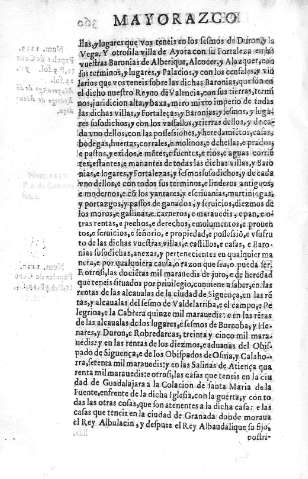 MAYORAZGO
llas, y lugares que vos teneis en los sesmos de Duron, y la
Vega. Y otrosi la villa de Ayora con su Fortaleza en
vuestras Baronias de Alberique, Alcocer, y Alazquer, con
sus terminos, y lugares, y Palacios, y con los censales, y
larios que vos teneis sobre las dichas Baronias, que son en
el dicho nuestro Reyno de Valencia, con sus tierras, termi-
nos, jurisdicion alta, y baxa, mero mixto imperio de todas
las dichas villas, y Fortalezas, y Baronias, y sesmos, y luga-
res susodichos, y con los vassallos, y tierras dellos, y de ca-
da vno dellos, e con las possessiones, y heredamientos, casas,
bodegas, huertas, corrales, e molinos, e dehessas, e prados,
e pastos, y exidos, e montes, e fuentes, e rios, e aguas corrie
tes, estantes, e manantes de todas las dichas villas, y Baro-
nias, e lugares, y Fortalezas, y sesmos susodichos, y de cada
vno dellos, e con todos sus terminos, e linderos antiguos,
e modernos, e con los yantares, y escriuanias, martiniegas,
y portazgos, y passos de ganados, y seruicios, diezmos de
los moros, e gallinas, e carneros, e marauedis, e pan, e o-
tras rentas, e pechos, e derechos, emolumentos, e prouen-
tos, e seruicios, e señorio, e propiedad, e possessió, e vsufru-
to de las dichas vuestras villas, e castillos, e casas, e Baro-
nias susodichas, anexas, y pertenecientes en qualquier ma
nera, e por qualquiera causa, o razon que sea, o pueda ser.
E otrosi, las docientas mil marauedis de juro, e de heredad
que teneis situados por priuilegio, conuiene a saber, en las
rentas de las alcaualas de la ciudad de Siguença, en las rê
tas, y alcaualas del sesmo de Valdelarriba, e el campo, e Pe
legrina, e la Cabrera quinze mil marauedis: e en las rêtas
de las alcaualas de los lugares, e sesmos de Bornoba, y He-
nares, y Duron, e Robredarcas, treinta y cinco mil mara-
uedis: y en las rentas de los diezmos, e aduanas del Obis-
pado de Siguença, e de los Obispados de Osma, y Calaho-
rra, setenta mil marauedis: y en las Salinas de Atiença qua
renta mil marauedis: e otrosi, las casas que teneis en la ciu
dad de Guadalajara a la Colacion de santa Maria de la
Fuente, enfrente de la dicha Iglesia, con la guerta, y con to
das las otras cosas, que son atenentes a la dicha casa: e las
casas que teneis en la ciudad de Granada donde moraua
el Rey Albulacin, y despues el Rey Albaudalique su fijo,
postri-